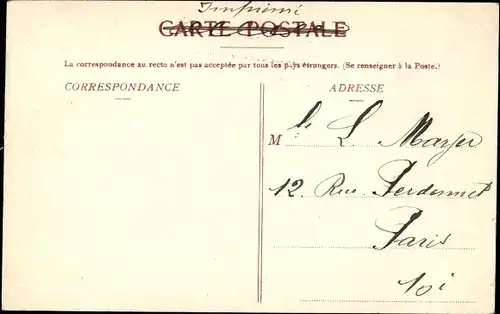 Imprimé
CARTE POSTALE
La correspondance au recto n'est pas acceptée par tous les pays étrangers. (Se renseigner à la Poste.)
CORRESPONDANCE
ADRESSE
M le L. Marger
12, Rue Perdonnet
Paris
10i